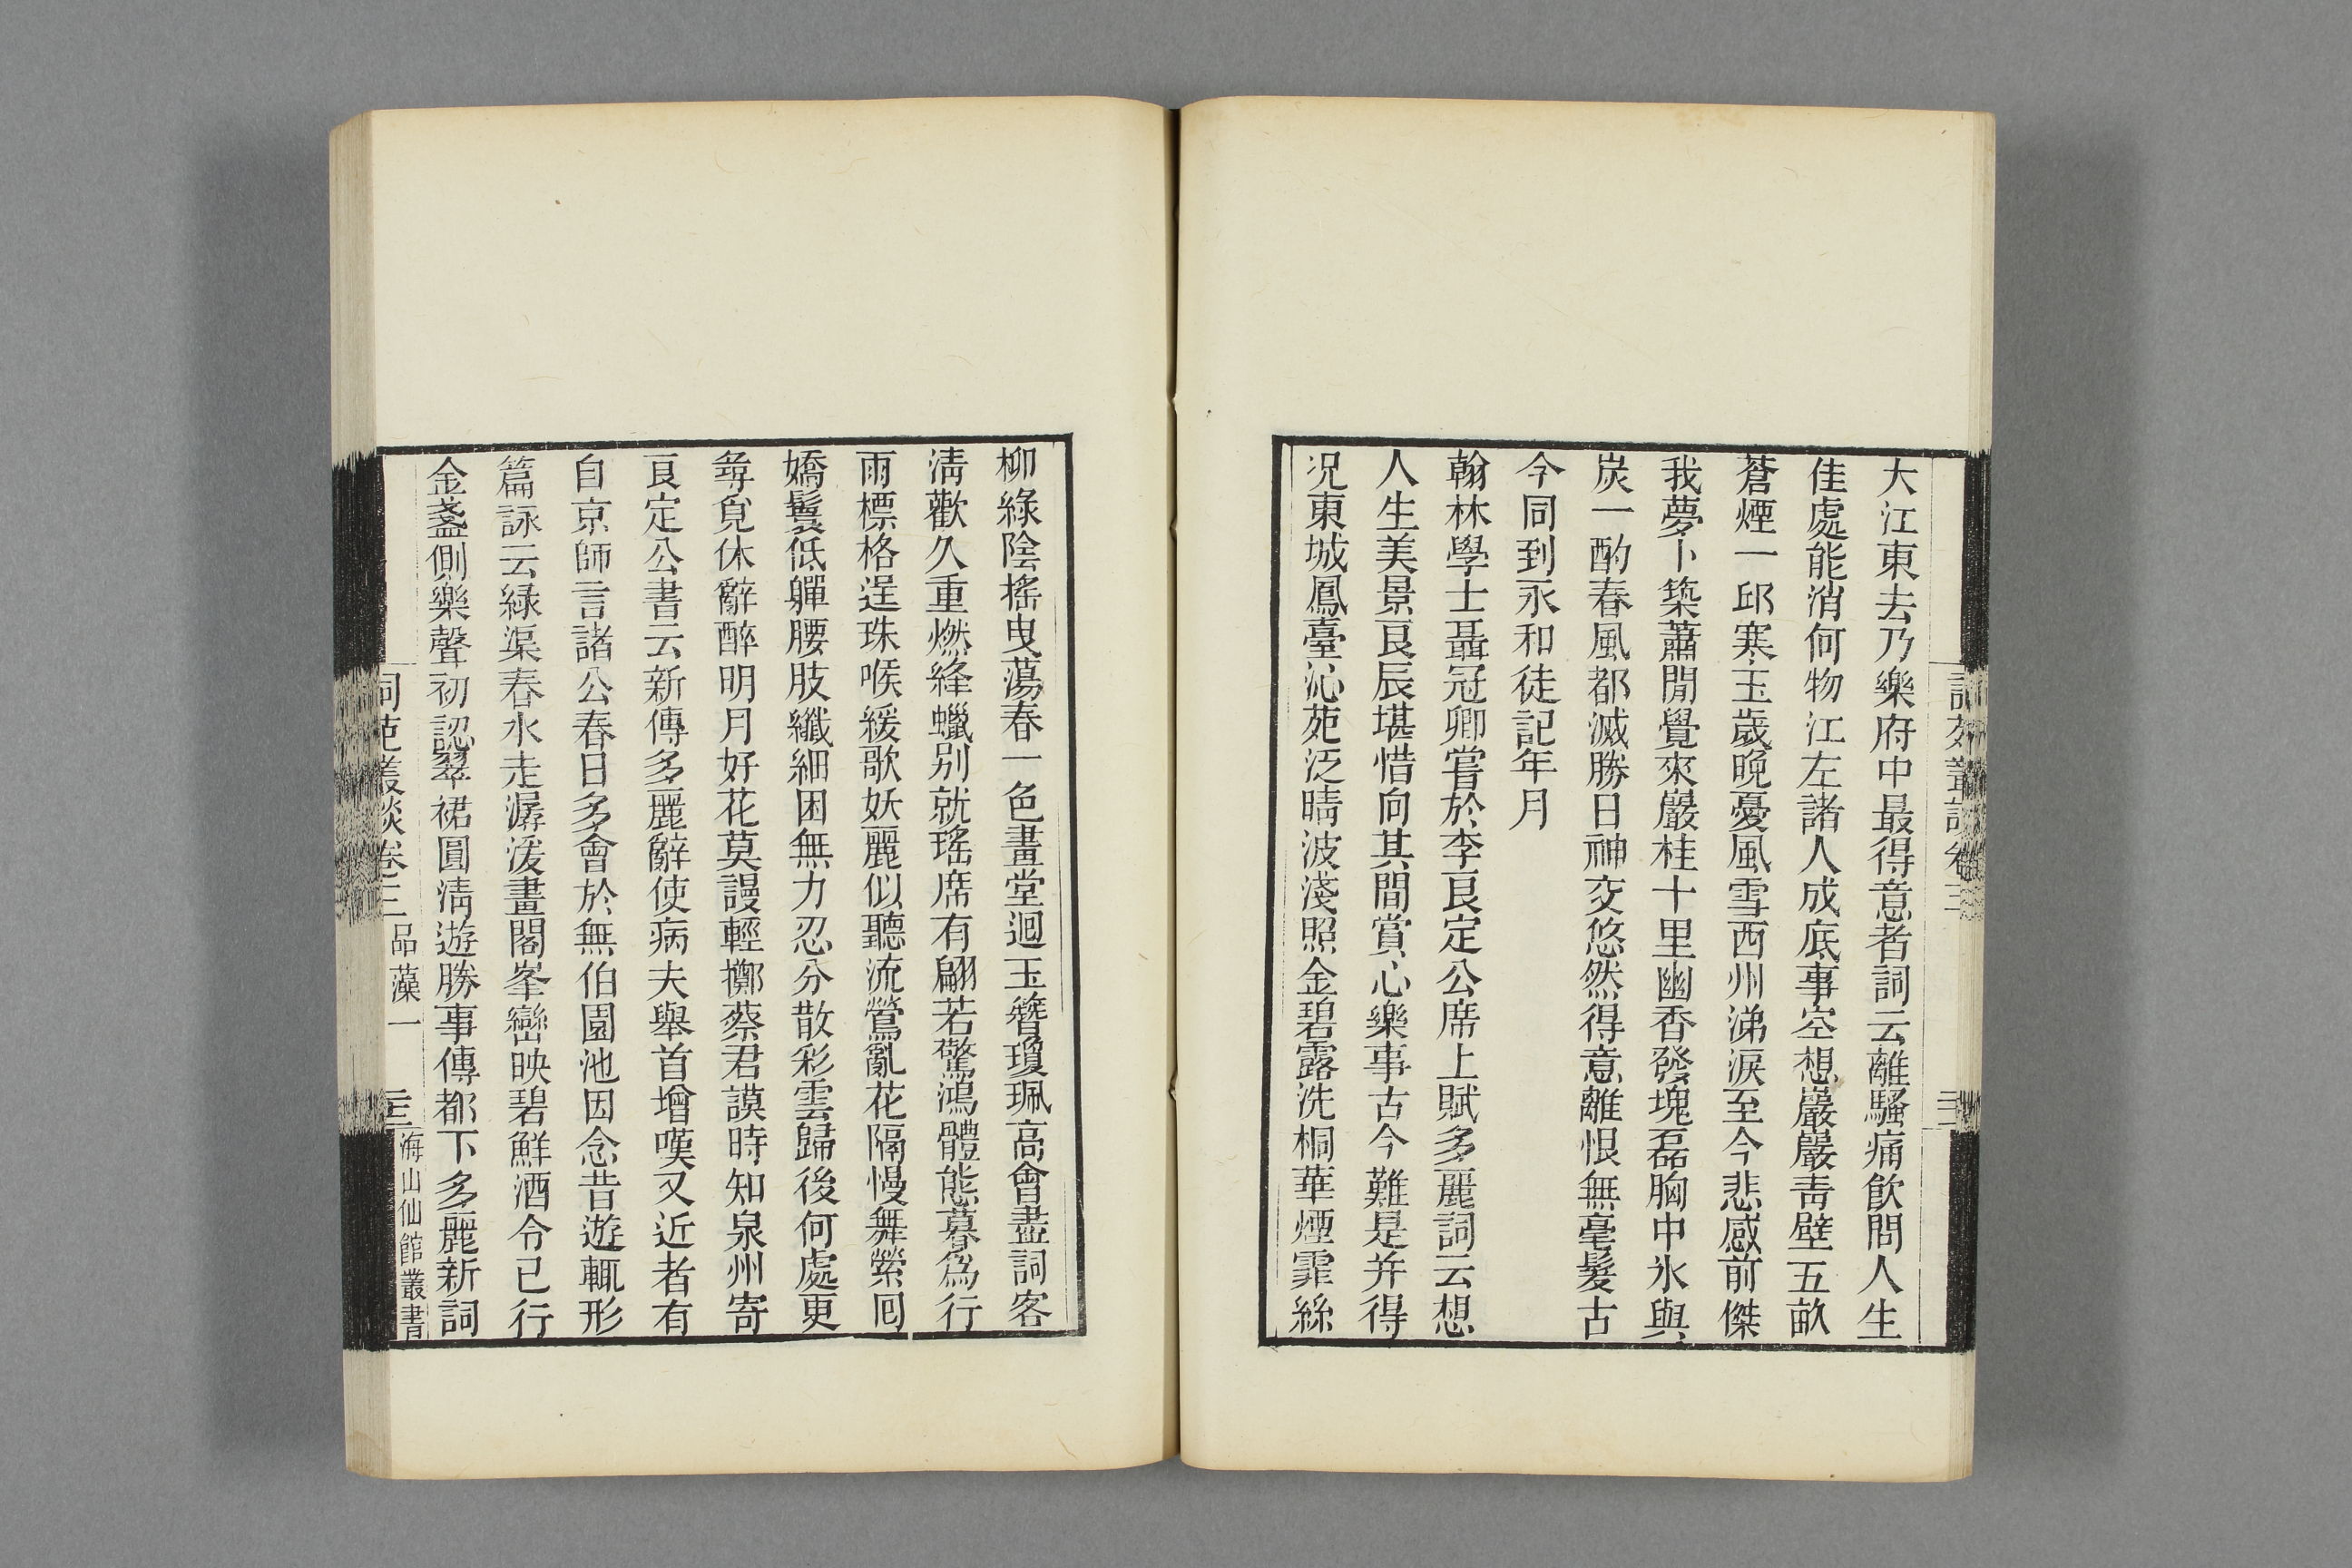 大江東去乃樂府中最得意者詞云離騷痛飲問人生
佳處能消何物江左諸人成底事空想巖巖靑壁五畝
蒼煙一邱寒玉歲晚憂風雪西州涕淚至今悲感前傑
我夢卜築蕭閒覺來巖桂十里幽香發塊磊胸中氷與
炭一酌春風都滅勝日神交悠然得意離恨無毫髮古
今同到永和徒記年月
翰林學士聶冠卿嘗於李良定公席上賦多麗詞云想
人生美景良辰堪惜向其間賞心樂事古今難是并得
況東城鳳臺沁苑泛晴波淺照金碧露洗桐華煙霏絲
柳綠陰搖曳蕩春一色畫堂迴玉簪瓊珮高會盡詞客
淸歡久重燃絳蠟別就瑤席有翩若驚鴻體態暮爲行
雨標格逞珠喉緩歌妖麗似聽流鶯亂花隔慢舞縈囘
嬌鬟低嚲腰肢纖細困無力忍分散彩雲歸後何處更
尋覓休辭醉明月好花莫謾輕擲蔡君謨時知泉州寄
良定公書云新傳多麗辭使病夫舉首增嘆又近者有
自京師言諸公春日多會於無伯園池因念昔遊輒形
篇詠云綠渠春水走潺湲畫閣峯巒映碧鮮酒令已行
金盞側樂聲初認翠裙圓淸遊勝事傳都下多麗新詞
詞苑叢談卷三 品藻一 三 海山仙館叢書